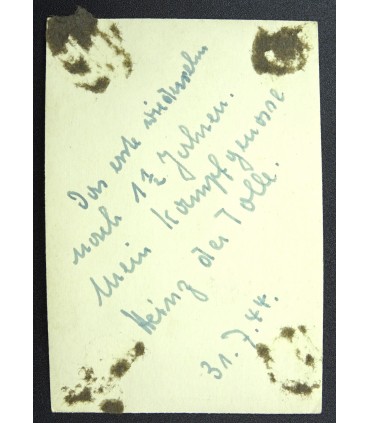 Das erste wiedersehn
nach 1½ Jahren.
Mein Kampfgenosse
Heinz der Tolle.
31.7.44.